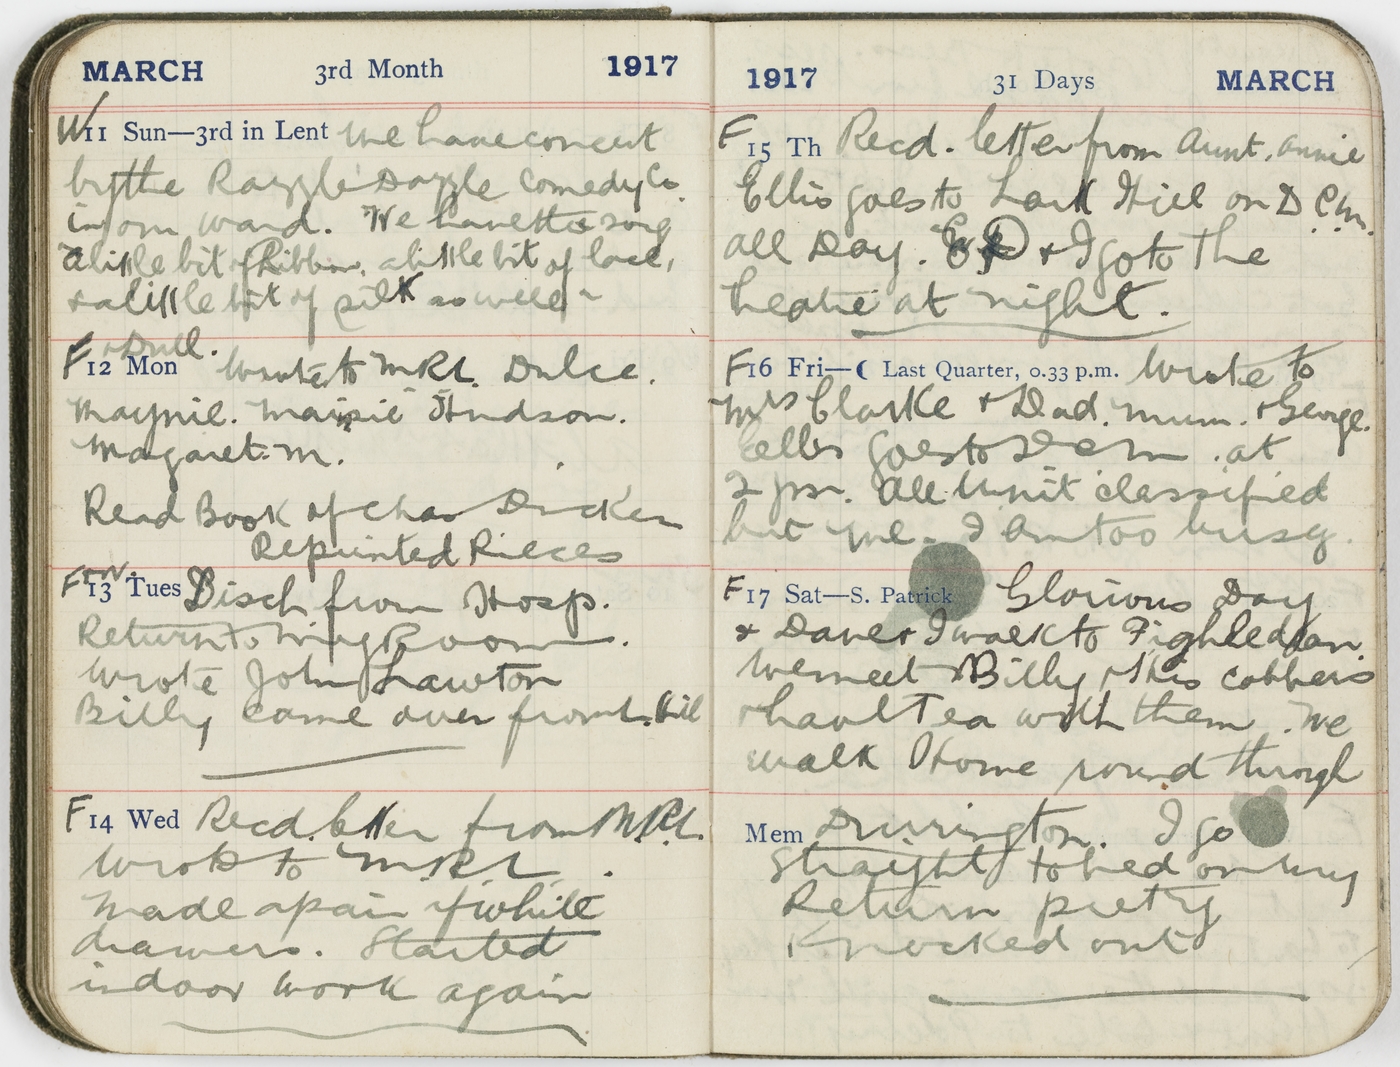 MARCH 3rd Month 1917
W 11 Sun—3rd in Lent We have concert
by the Razzle Dazzle Comedy Co.
in our ward. We have the song
A little bit of Ribbon, a little bit of lace,
& a little bit of silk so well
F & Dull.
12 Mon Wrote to MRL. Dulce.
Maynie. Maisie Hudson.
Margaret. M.
Read Book of Chas Dicken
Reprinted Pieces
F 13 Tues Disch from Hosp.
Return to Room.
Wrote John Lawton
Billy came over from L. Hill
F 14 Wed Recd. letter from MRL.
Wrote to MRL.
Made a pair of white
drawers. Started
indoor work again
1917 31 Days MARCH
F 15 Th Recd. letter from Aunt. Annie
Ellis goes to Lark Hill on D C M.
all Day. & I go to the
heatre at night.
F 16 Fri—☾ Last Quarter, 0.33 p.m. Wrote to
Mrs Clarke & Dad. Mum. & George.
Ellis goes to D C M. at
2 pm. All Unit classified
but me. I am too busy.
F 17 Sat—S. Patrick Glorious Day
& Dave & I walk to Fighledean.
We meet Billy & His cobbers
& have Tea with them. We
walk Home round through
Mem Durrington. I go
straight to bed on my
Return pretty
Knocked out